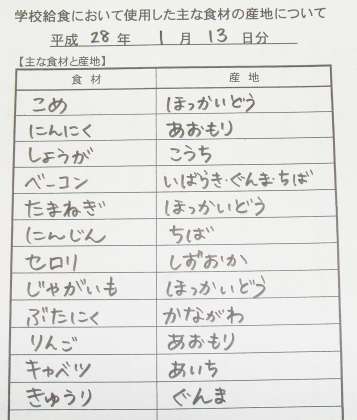 学校給食において使用した主な食材の産地について
平成 28 年 1 月 13 日分
【主な食材と産地】
食材 産地
こめ ほっかいどう
にんにく あおもり
しょうが こうち
ベーコン いばらき・ぐんま・ちば
たまねぎ ほっかいどう
にんじん ちば
セロリ しずおか
じゃがいも ほっかいどう
ぶたにく かながわ
りんご あおもり
キャベツ あいち
きゅうり ぐんま